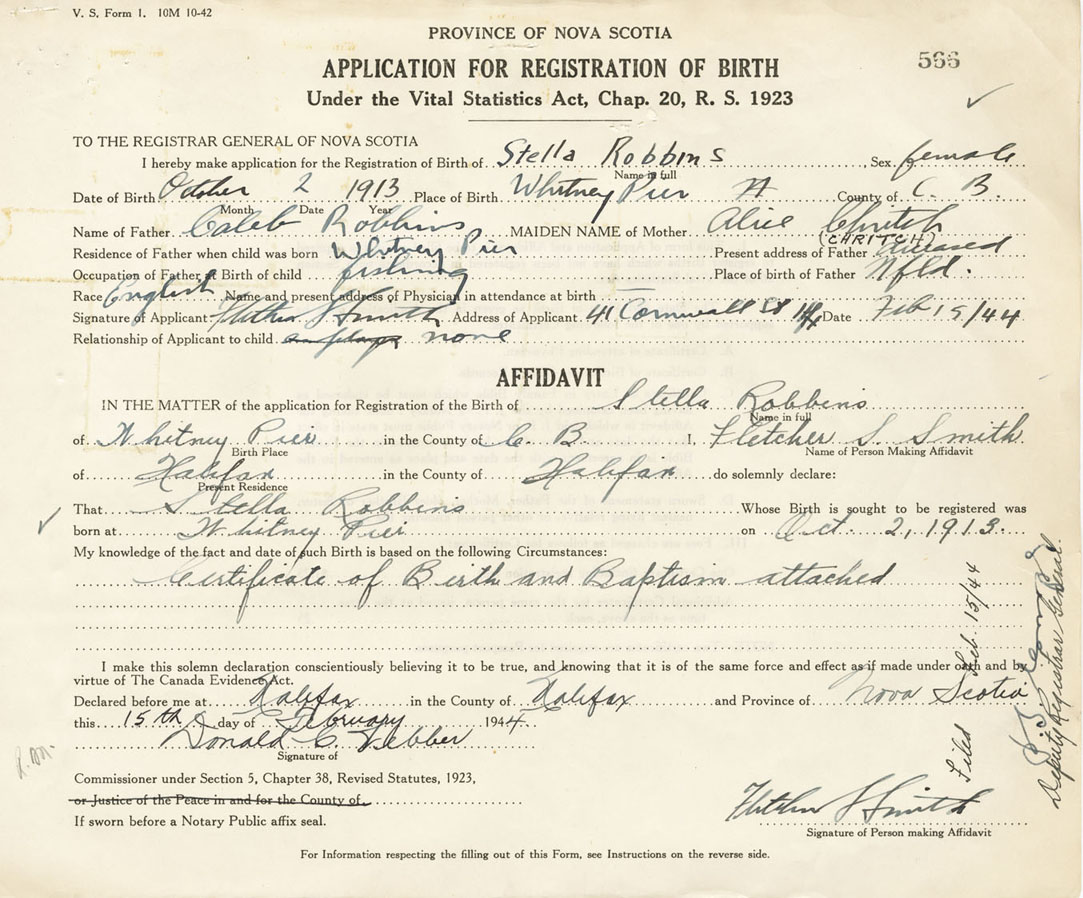 V. S. Form 1. 10M 10-42
PROVINCE OF NOVA SCOTIA
566
APPLICATION FOR REGISTRATION OF BIRTH
Under the Vital Statistics Act, Chap. 20, R. S. 1923
TO THE REGISTRAR GENERAL OF NOVA SCOTIA
I hereby make application for the Registration of Birth of Stella Robbins Sex female
Name in full
Date of Birth October 2 1913 Place of Birth Whitney Pier County of C. B.
Month Date Year
Name of Father Caleb Robbins, MAIDEN NAME of Mother Alice Chritch
(CHRITCH)
Residence of Father when child was born Whitney Pier Present address of Father diseased
Occupation of Father at Birth of child fishing Place of birth of Father Nfld.
Race English Name and present address of Physician in attendance at birth —
Signature of Applicant Fletcher S Smith Address of Applicant 41 Cornwall St Hfx Date Feb 15/44
Relationship of Applicant to child none
AFFIDAVIT
IN THE MATTER of the application for Registration of the Birth of Stella Robbins
Name in full
of Whitney Pier in the County of C. B. I, Fletcher S. Smith
Birth Place Name of Person Making Affidavit
of Halifax in the County of Halifax do solemnly declare:
Present Residence
That Stella Robbins Whose Birth is sought to be registered was
born at Whitney Pier on Oct. 2, 1913.
My knowledge of the fact and date of such Birth is based on the following Circumstances:
Certificate of Birth and Baptism attached
I make this solemn declaration conscientiously believing it to be true, and knowing that it is of the same force and effect as if made under oath and by
virtue of The Canada Evidence Act.
Declared before me at Halifax in the County of Halifax and Province of Nova Scotia
this 15th day of February 1944.
Donald C. Webber
Signature of
Commissioner under Section 5, Chapter 38, Revised Statutes, 1923,
or Justice of the Peace in and for the County of
If sworn before a Notary Public affix seal.
Fletcher S Smith
Signature of Person making Affidavit
For Information respecting the filling out of this Form, see Instructions on the reverse side.
Filed Feb. 15/44
Deputy Registrar General.